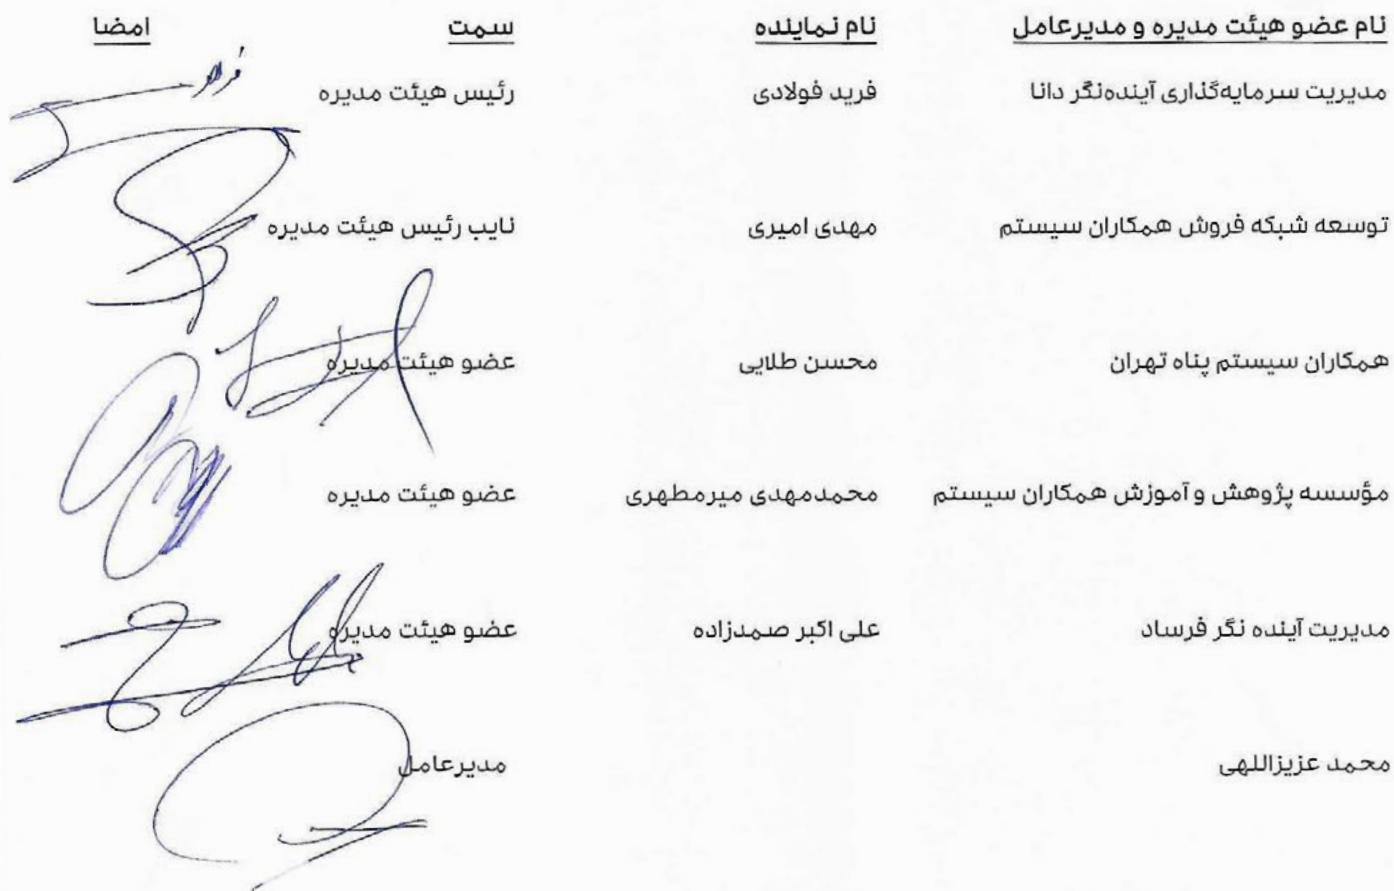 نام عضو هیئت مدیره و مدیرعامل نام نماینده سمت امضا
مدیریت سرمایه‌گذاری آینده‌نگر دانا فرید فولادی رئیس هیئت مدیره
توسعه شبکه فروش همکاران سیستم مهدی امیری نایب رئیس هیئت مدیره
همکاران سیستم پناه تهران محسن طلایی عضو هیئت مدیره
مؤسسه پژوهش و آموزش همکاران سیستم محمدمهدی میرمطهری عضو هیئت مدیره
مدیریت آینده نگر فرساد علی اکبر صمدزاده عضو هیئت مدیره
محمد عزیزاللهی مدیرعامل